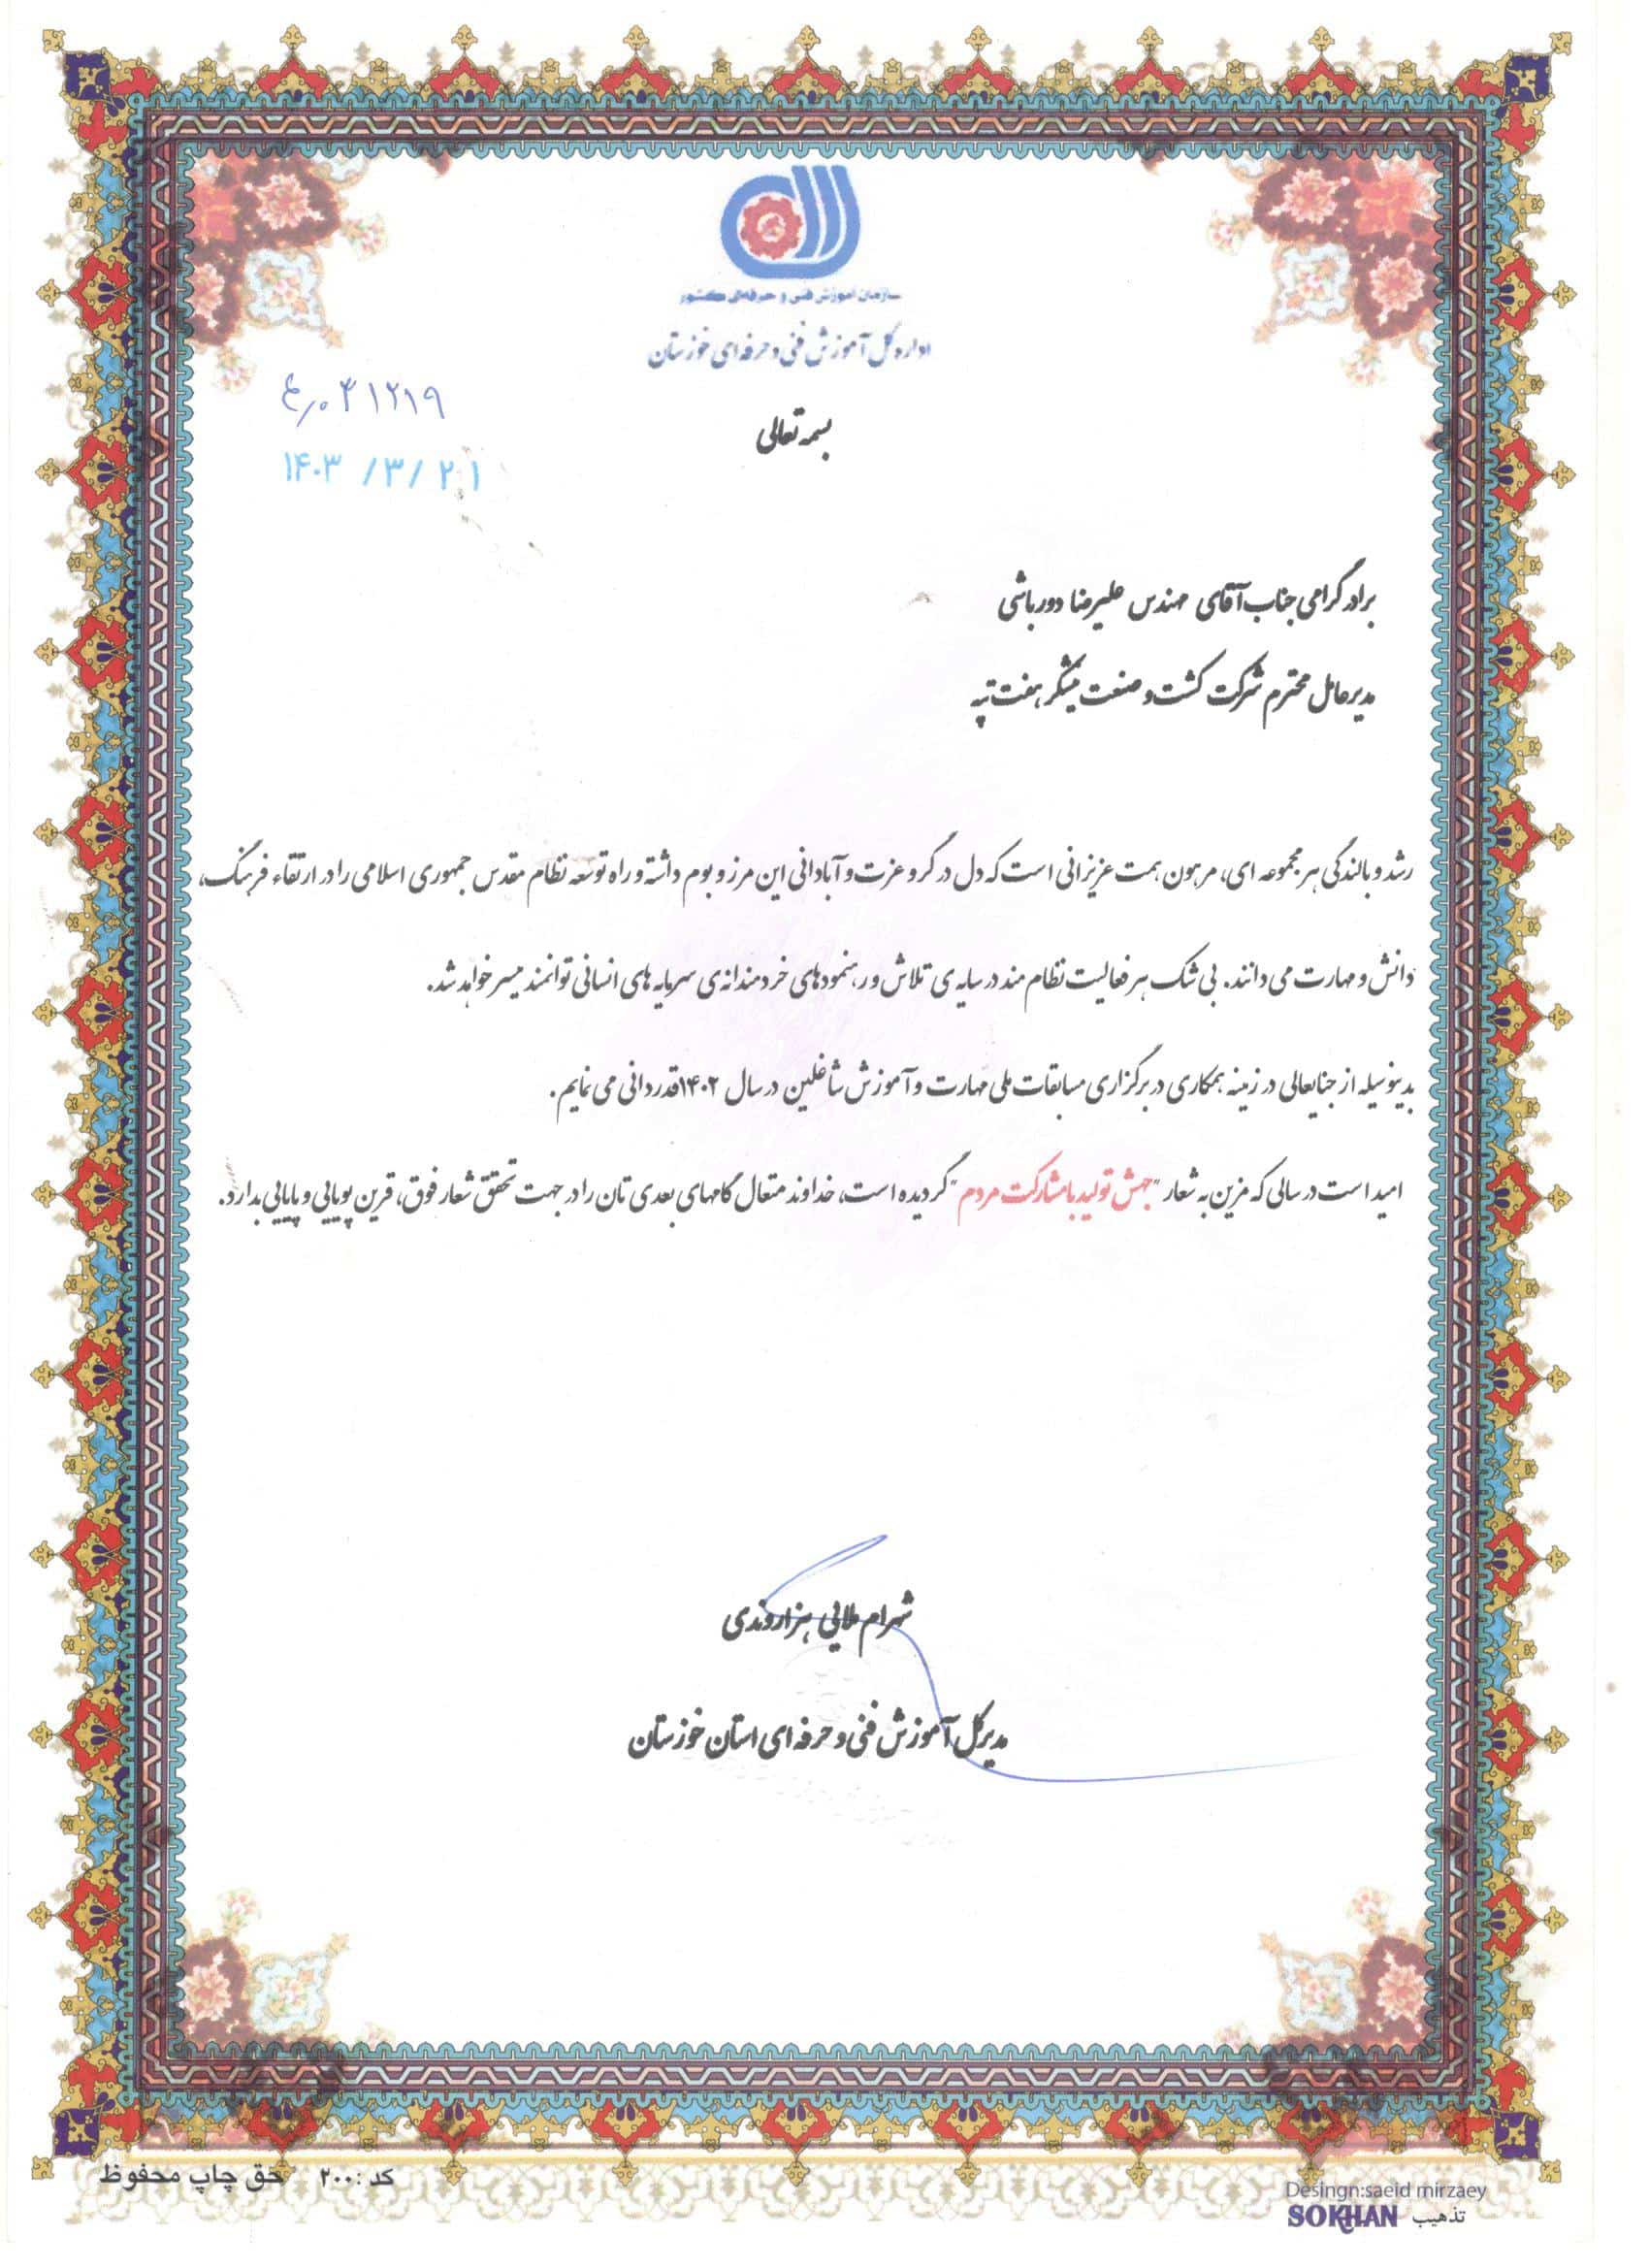 سازمان آموزش فنی و حرفه‌ای کشور
اداره کل آموزش فنی و حرفه ای خوزستان
بسمه تعالی
۱۴۰۳ /۳/ ۲۱
برادر گرامی جناب آقای مهندس علیرضا دورباشی
مدیرعامل محترم شرکت کشت و صنعت نیشکر هفت تپه
رشد و بالندگی هر مجموعه ای، مرهون همت عزیزانی است که دل در گرو عزت و آبادانی این مرز و بوم داشته و راه توسعه نظام مقدس جمهوری اسلامی را در ارتقاء فرهنگ،
دانش و مهارت می دانند. بی شک هر فعالیت نظام مند در سایه ی تلاش و رهنمودهای خردمندانه ی سرمایه های انسانی توانمند میسر خواهد شد.
بدینوسیله از جنابعالی در زمینه همکاری در برگزاری مسابقات ملی مهارت و آموزش شاغلین در سال ۱۴۰۲ قدردانی می نمایم.
امید است در سالی که مزین به شعار "جهش تولید با مشارکت مردم" گردیده است، خداوند متعال گامهای بعدی تان را در جهت تحقق شعار فوق، قرین پویایی و پایایی بدارد.
شهرام طلایی هزاروندی
مدیرکل آموزش فنی و حرفه ای استان خوزستان
کد :۲۰۰ حق چاپ محفوظ
Desingn:saeid mirzaey
تذهیب SOKHAN